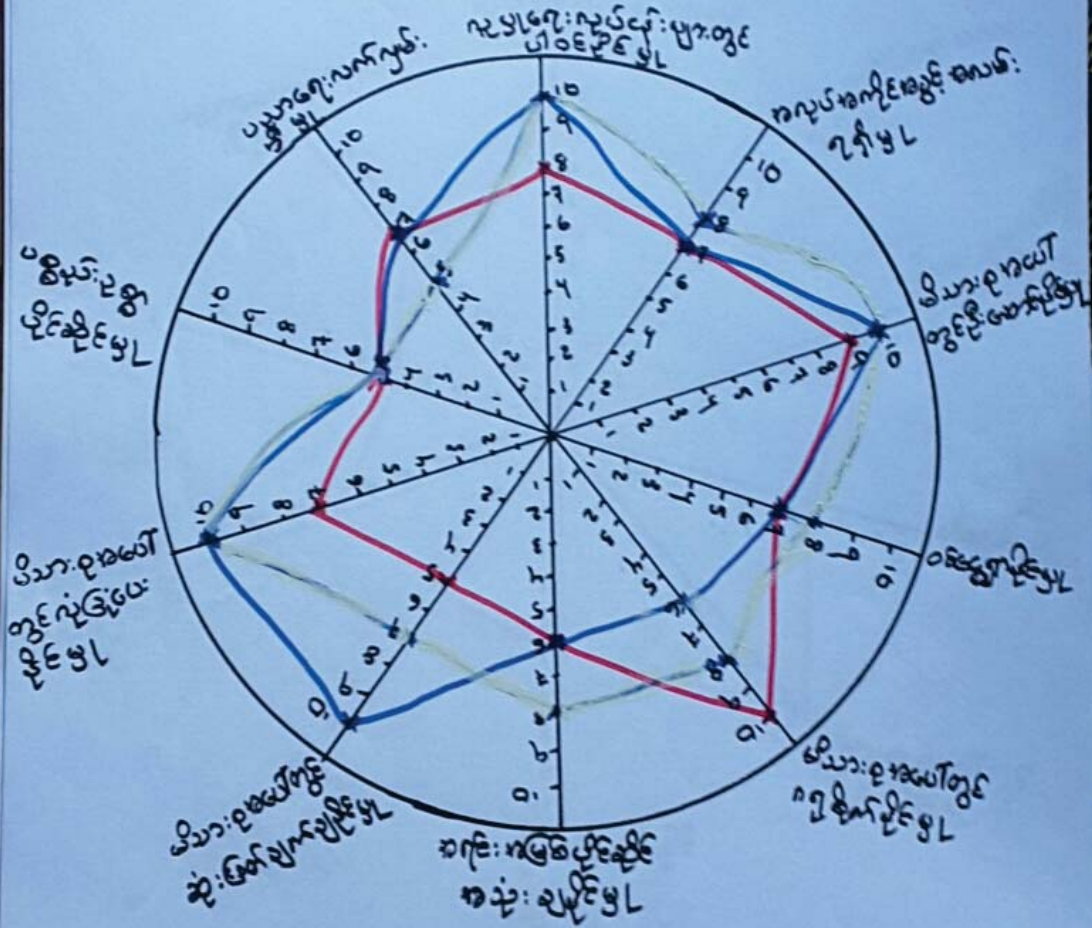 လူမှုရေးလုပ်ငန်းများတွင်
ပါဝင်နိုင်မှု
အလုပ်အကိုင်အခွင့်အလမ်း
ရရှိမှု
မိသားစုအပေါ်
တွင်ဦးဆောင်နိုင်မှု
ဝင်ငွေရှာနိုင်မှု
မိသားစုအပေါ်တွင်
ဂရုစိုက်နိုင်မှု
အရင်းအမြစ်ပိုင်ဆိုင်
အသုံးချနိုင်မှု
မိသားစုအပေါ်တွင်
ဆုံးဖြတ်ချက်ချနိုင်မှု
မိသားစုအပေါ်
တွင်လုံခြုံပေး
နိုင်မှု
ပစ္စည်းဥစ္စာ
ပိုင်ဆိုင်မှု
ပညာရေးလက်လှမ်း
မှီမှု
10
9
8
7
6
5
4
3
2
1